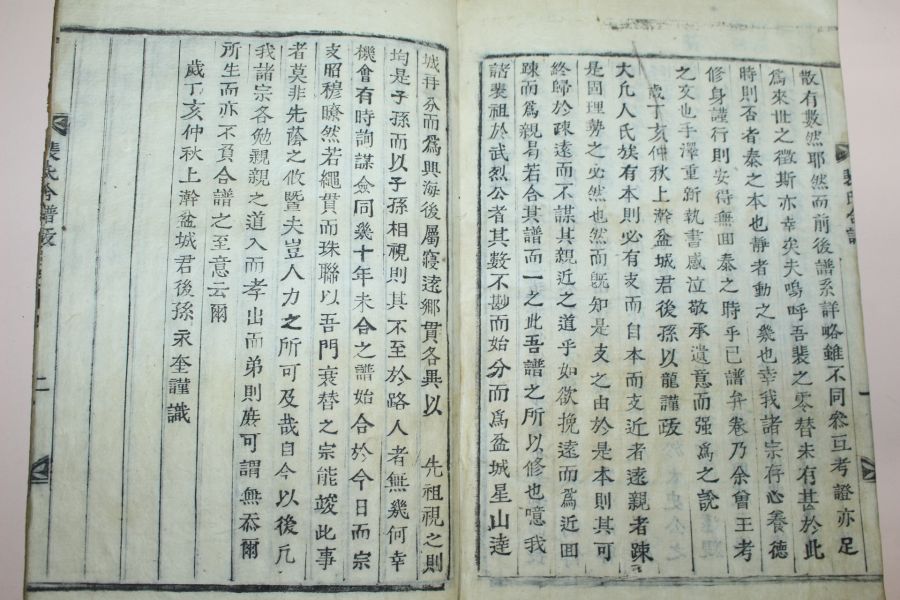 散有數然耶然而前後譜系詳略雖不同叅互考證亦足
爲來世之徵斯亦幸矣夫嗚呼吾裴之零替未有甚於此
時則否者泰之本也靜者動之幾也幸我諸宗存心養德
修身謹行則安得無回泰之時乎已譜弁卷乃余曾王考
之文也手澤重新執書感泣敬承遺意而强爲之說
歲丁亥仲秋上澣盆城君後孫以龍謹跋
大凡人氏族有本則必有支而自本而支近者遠親者踈
是固理勢之必然也然而旣知是支之由於是本則其可
終歸於疎遠而不謀其親近之道乎如欲挽遠而爲近回
踈而爲親曷若合其譜而一之此吾譜之所以修也噫我
諸裴祖於武烈公者其數不尠而始分而爲盆城星山達
城再分而爲興海後屬寢遠鄕貫各異以 先祖視之則
均是子孫而以子孫相視則其不至於路人者無幾何幸
機會有時詢謀僉同幾十年未合之譜始合於今日而宗
支昭穆瞭然若繩貫而珠聯以吾門衰替之宗能竣此事
者莫非先蔭之攸曁夫豈人力之所可及哉自今以後凡
我諸宗各勉親親之道入而孝出而弟則庶可謂無忝爾
所生而亦不負合譜之至意云爾
歲丁亥仲秋上澣盆城君後孫永奎謹識
裴氏合譜跋
二